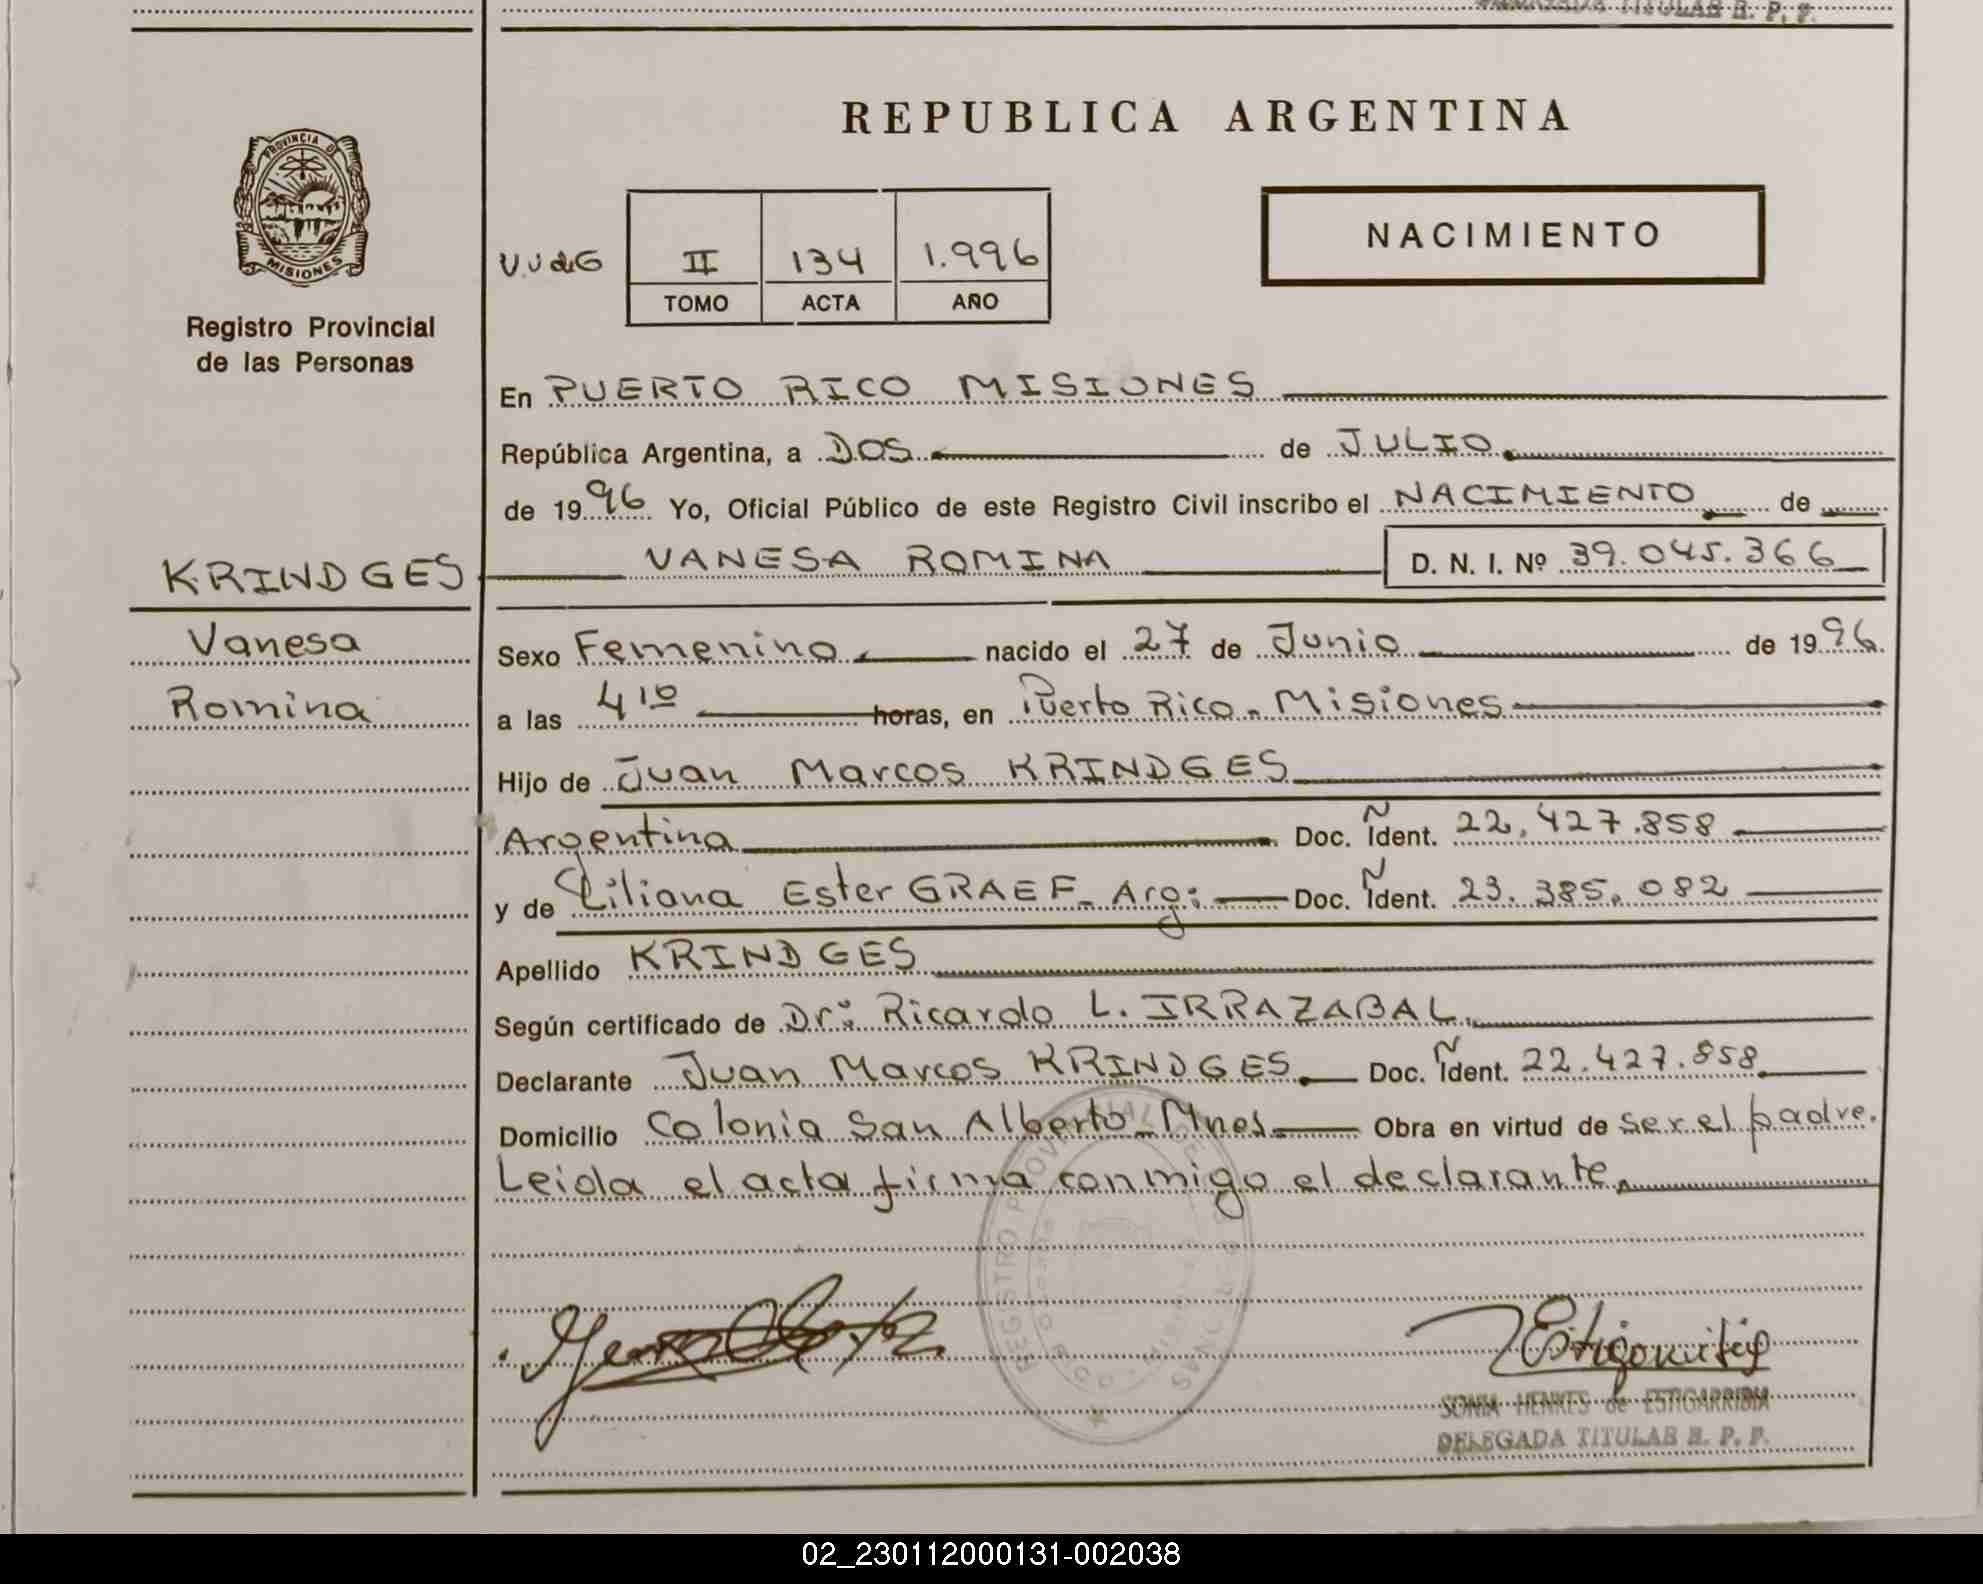 DELEGADA TITULAR R. P. P.
PROVINCIA D
MISIONES
Registro Provincial
de las Personas
REPUBLICA ARGENTINA
NACIMIENTO
II 134 1.996
TOMO ACTA AÑO
En PUERTO RICO MISIONES
República Argentina, a DOS de JULIO
de 1996 Yo, Oficial Público de este Registro Civil inscribo el NACIMIENTO de
VANESA ROMINA D. N. I. Nº 39.045.366
KRINDGES
Vanesa
Romina
Sexo Femenino nacido el 27 de Junio de 1996
a las 4 10 horas, en Puerto Rico - Misiones
Hijo de Juan Marcos KRINDGES
Argentina Doc. Ident. Ñ 22.427.858
y de Liliana Ester GRAEF - Arg: Doc. Ident. Ñ 23.385.082
Apellido KRINDGES
Según certificado de Dr: Ricardo L. IRRAZABAL
Declarante Juan Marcos KRINDGES Doc. Ident. Ñ 22.427.858
Domicilio Colonia San Alberto - Mnes Obra en virtud de ser el padre.
Leida el acta firma conmigo el declarante
REGISTRO PROVINCIAL DE LAS PERSONAS
SONIA HENKES de ESTIGARRIBIA
DELEGADA TITULAR R. P. P.
02_230112000131-002038